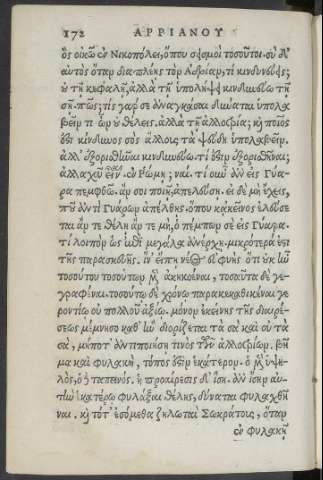 172 ΑΡΡΙΑΝΟΥ
ὃς οἰκῶ ἐν Νικοπόλει, ὅπου σεισμοὶ τοσοῦτοι. σὺ δ'
αὐτὸς ὅταν διαπλέῃς τὸν Ἀδρίαν, τί κινδυνεύεις;
οὐ τῇ κεφαλῇ, ἀλλὰ τῇ ὑπολήψει κινδυνεύω τῇ
σῇ. πῶς; τίς γάρ σε ἀναγκάσαι δύναται ὑπολα
βεῖν τι ὧν οὐ θέλεις. ἀλλὰ τῇ ἀλλοτρίᾳ; καὶ ποῖος
ἐστι κίνδυνος σὸς ἄλλους τὰ ψευδῆ ὑπολαβεῖν.
ἀλλ' ἐξορισθῆναι κινδυνεύω. τί ἐστιν ἐξορισθῆναι;
ἀλλαχοῦ εἶναι ἐν Ῥώμῃ; ναί. τί οὖν ἂν εἰς Γύα-
ρα πεμφθῶ. ἄν σοι ποιῇ, ἀπελεύσῃ. εἰ δὲ μὴ ἔχεις,
ποῦ ἀντὶ Γυάρων ἀπέλθῃς. ὅπου κἀκεῖνος ἐλεύσε
ται ἄν τε θέλῃ ἄν τε μὴ, ὁ πέμπων σε εἰς Γύαρα.
τί λοιπὸν ὡς ἐπὶ μεγάλα ἀνέρχῃ. μικρότερά ἐσ
τι τῆς παρασκευῆς. ἵν' εἴπῃ νέος εὐφυὴς ὅτι οὐκ ἦν
τοσούτου τοσούτων μὲν ἀκηκοέναι, τοσαῦτα δὲ γε-
γραφέναι. τοσούτῳ δὲ χρόνῳ παρακεκαθικέναι γε
ροντίῳ οὐ πολλοῦ ἀξίῳ. μόνον ἐκείνης τῆς διαιρέ-
σεως μέμνησο καθ' ἣν διορίζεται τὰ σὰ καὶ οὐ τὰ
σὰ, μήποτ' ἀντιποιήσῃ τινὸς τῶν ἀλλοτρίων. βῆ
μα καὶ φυλακὴ, τόπος ἐστὶν ἑκάτερον. ὁ μὲν ὑψη-
λὸς, ὁ δὲ ταπεινός. ἡ προαίρεσις δ' ἴση. ἂν ἴσην αὐ-
τὴν ἑκατέρῳ φυλάξαι θέλῃς, δύναται φυλαχθῆ
ναι. καὶ τότ' ἐσόμεθα ζηλωταὶ Σωκράτους, ὅταν
ἐν φυλακῇ